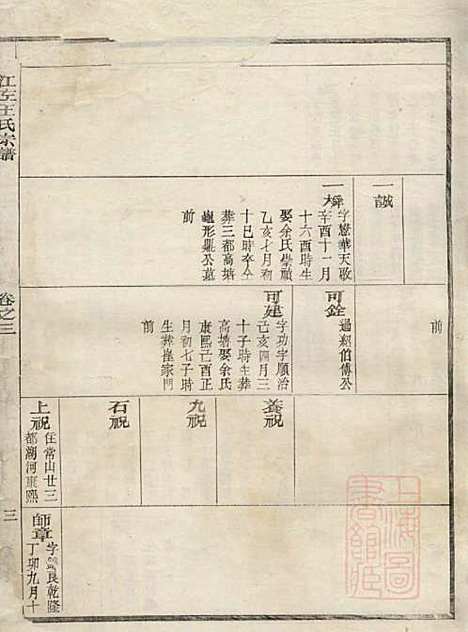 江左王氏宗譜
卷之三
三
一誠
一
字懋華天啟
辛酉十一月
十六酉時生
娶余氏崇禎
乙亥七月初
十巳時卒仝
葬三都高塘
龜形羅公墓
前
前
可銓
過紹伯傅公
可建
字功字順治
己亥四月三
十子時生葬
高塘娶余氏
康熙己酉正
月初七子時
生葬崖家門
前
養祝
九祝
石祝
上祝
住常山廿三
都澗河康熙
師章
字 良乾隆
丁卯九月十
上海圖書館藏